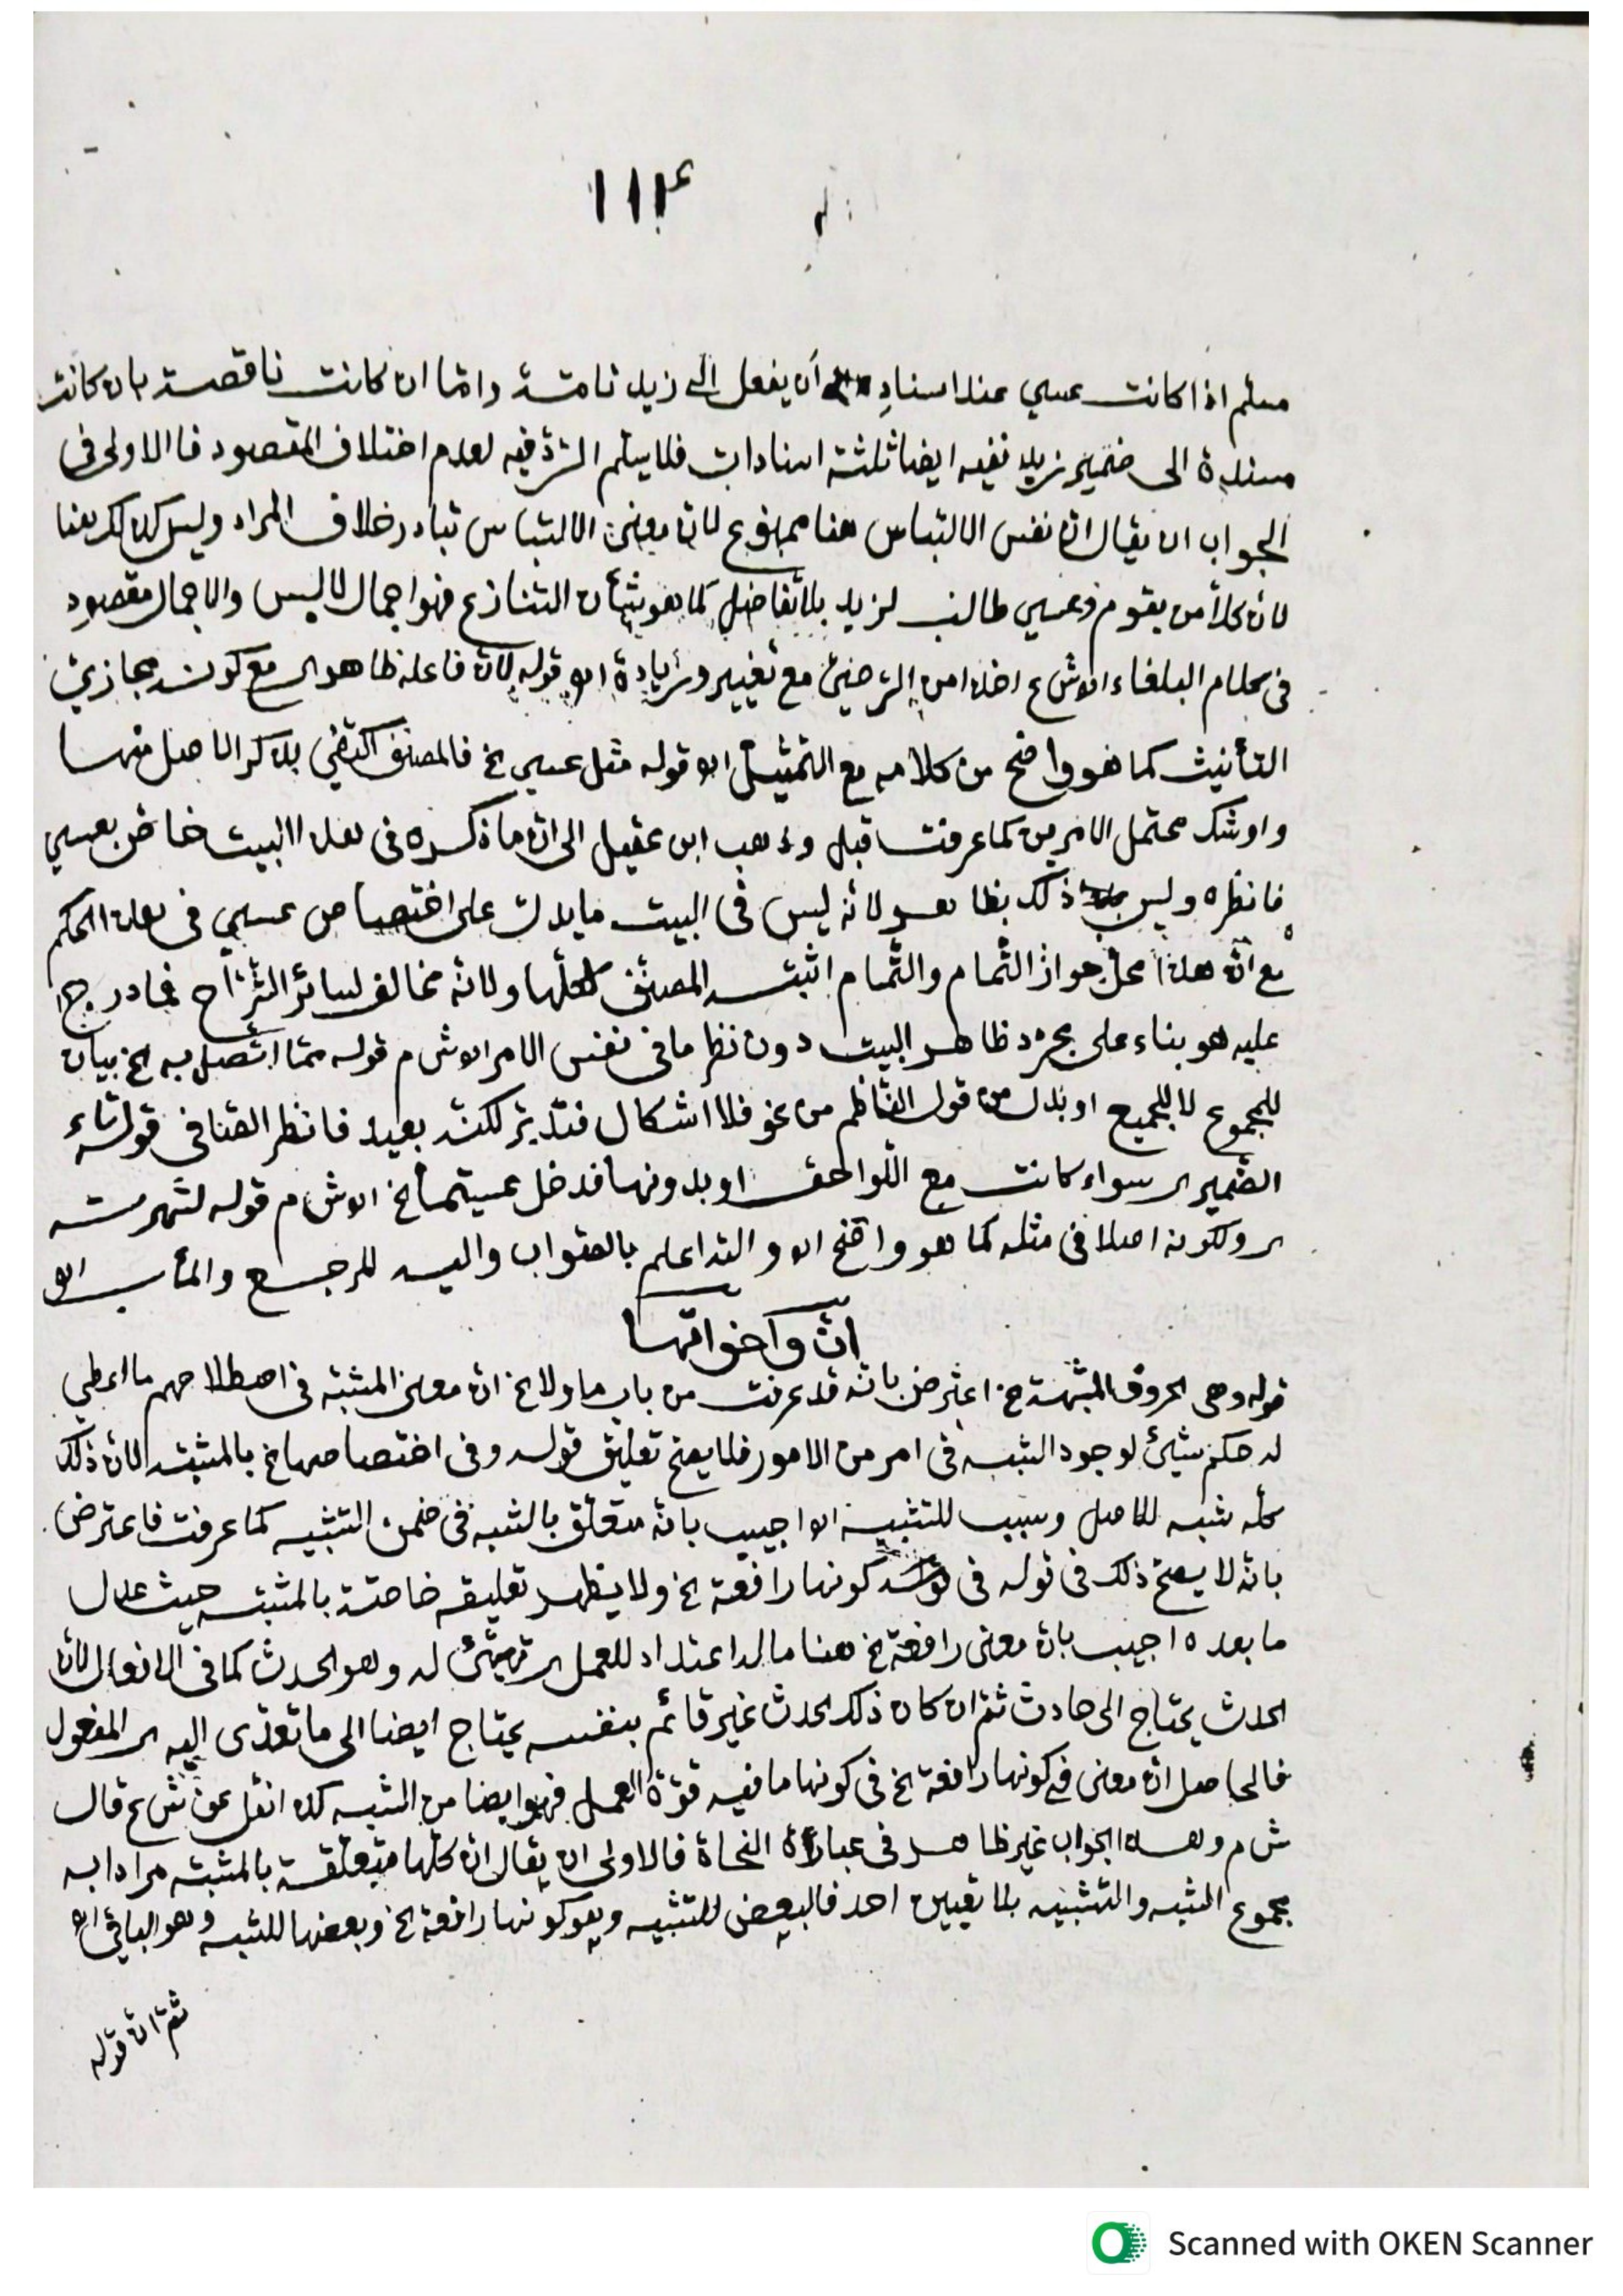 ١١٢
مسلم اذا كانت عسي عند اسناد أن يفعل الى زيد تامة واما ان كانت ناقصة بان كانت
مسندة الى ضمير زيد ففيه ايضا ثلثة اسنادات فلا يتم الرد فيه لعدم اختلاف المقصود فاالاولى فى
الجواب ان يقال ان نفس الالتباس هنا ممنوع لان معنى الالتباس تبادر خلاف المراد وليس كذلك هنا
لان كلا من يقوم وعسي طالب لزيد بلا تفاضل كما هو شأن التنازع فهو اجمال لا لبس والاجمال مقصود
فى كلام البلغاء اهـ ش ع اخذا من الرضي مع تغيير وزيادة اهـ قوله لان فاعله ظاهر اى مع كونه مجازي
التأنيث كما هو واضح من كلامه مع التمثيل اهـ قوله مثل عسي الخ فالمصنف اكتفى بذكر الاصل منها
واوشك محتمل الامرين كما عرفت قبل وذهب ابن عقيل الى ان ما ذكره فى هذا البيت خاص بعسي
فانظره وليس ذلك بظاهر لانه ليس فى البيت ما يدل على اختصاص عسي فى هذا الحكم
مع ان هذا محل جواز التمام والتمام اثبته المصنف لكلها ولانه مخالف لسائر الشراح فما درج
عليه هو بناء على مجرد ظاهر البيت دون نظر ما فى نفس الامر اهـ ش م قوله مما اتصل به الخ بيان
للمجموع لا للجميع او بدل من قول الناظم من نحو فلا اشكال فتدبر لكنه بعيد فانظر الصنا فى قوله تاء
الضمير اى سواء كانت مع اللواحق او بدونها فدخل عسيتما الخ اهـ ش م قوله لشهرته
اى ولكونه اصلا فى مثله كما هو واضح اهـ والله اعلم بالصواب واليه المرجع والمأب اهـ
ان وأخواتها
قوله وهى الحروف المشبهة الخ اعترض بانه قد عرفت من باب ما ولا الخ ان معنى المشبه فى اصطلاحهم ما اعطي
له حكم شيئ لوجود الشبه فى امر من الامور فلا يصح تعليق قوله وفى اختصاصها الخ بالمشبهة لان ذلك
كله شبه للاصل وسبب للتشبيه اهـ اجيب بانه متعلق بالشبه فى ضمن التشبيه كما عرفت فاعترض
بانه لا يصح ذلك فى قوله فى كونها رافعة الخ ولا يظهر تعليقه خاصة بالمشبه حيث عدل
ما بعده اجيب بان معنى رافعة الخ هنا ما له اعتداد للعمل اى تهيئ له وهو الحدث كما فى الافعال لان
الحدث يحتاج الى حادث ثم ان كان ذلك الحدث غير قائم بنفسه يحتاج ايضا الى ما تعدى اليه اى المفعول
فالحاصل ان معنى فى كونها رافعة الخ فى كونها ما فيه قوة العمل فهو ايضا من الشبه كذا نقل عن ش ع قال
ش م وهذا الجواب غير ظاهر فى عبارة النحاة فالاولى ان يقال ان كلها متعلقة بالمشبه مرادا به
مجموع الشبه والتشبيه بلا تعيين احد فالبعض للتشبيه وهو كونها رافعة الخ وبعضها للشبه وهو الباقى اهـ
ثم ان قوله
Scanned with OKEN Scanner